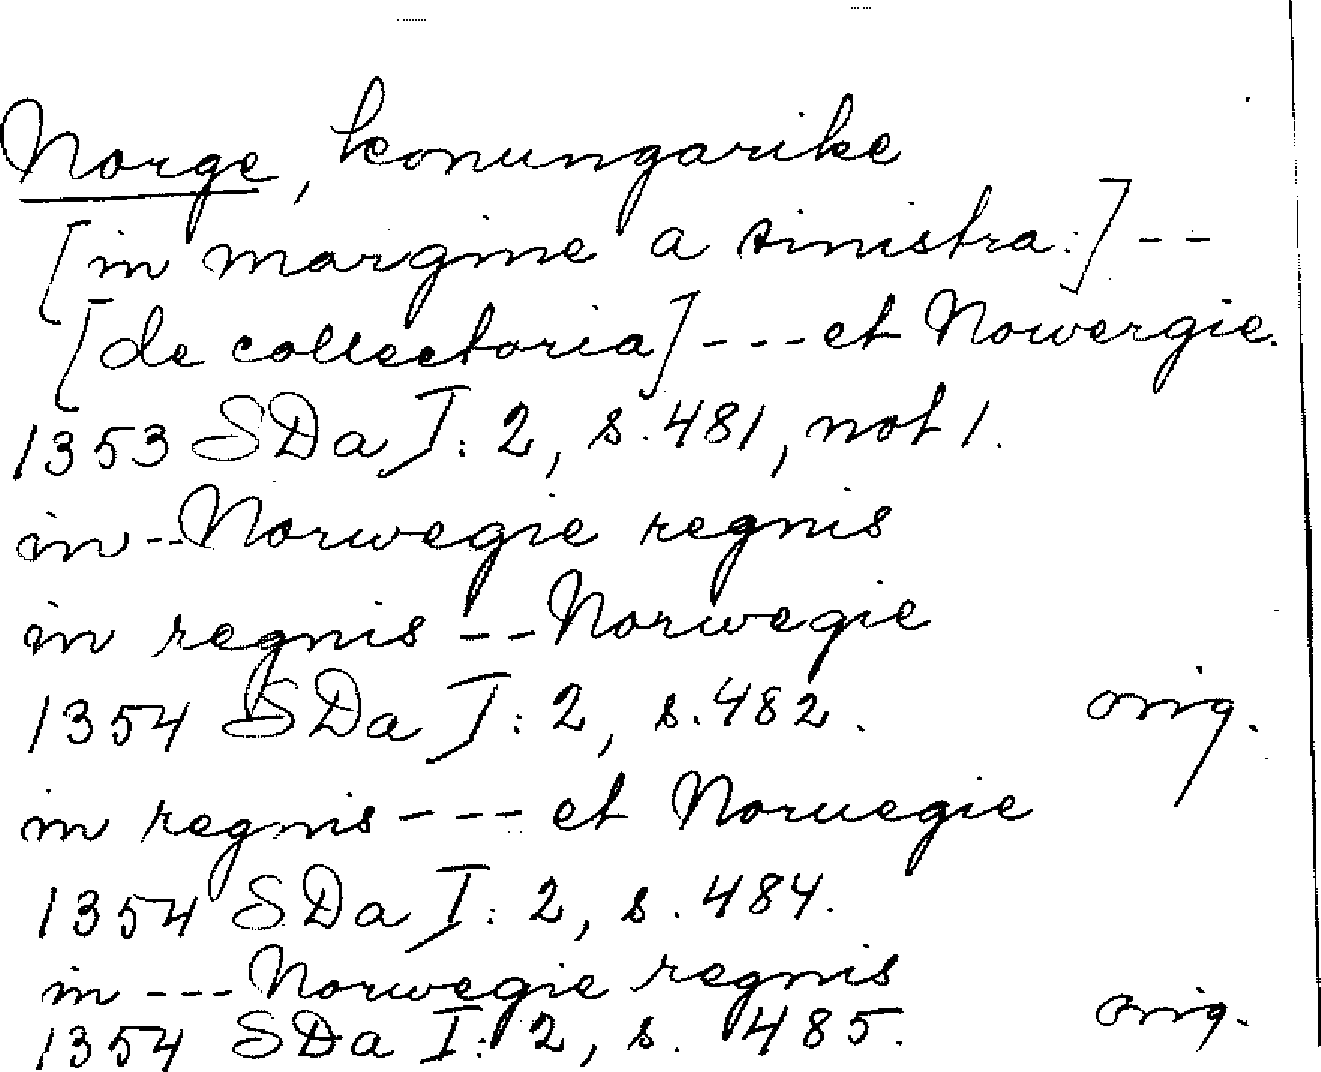 Norge, konungarike
[in margine a sinistra:] --
[de collectoria] --- et Nowergie.
1353 SDa I:2, s. 481, not 1.
in -- Norwegie regnis
in regnis -- Norwegie
1354 SDa I:2, s. 482. orig.
in regnis --- et Noruegie
1354 SDa I:2, s. 484.
in --- Norwegie regnis
1354 SDa I:2, s. 485. orig.